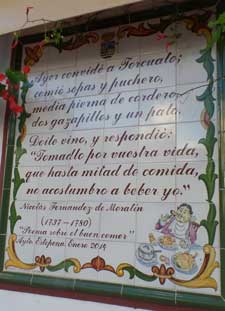 Ayer convidé a Torcuato;
comió sopas y puchero,
media pierna de cordero,
dos gazapillos y un pato.
Doile vino, y respondió:
"Tomadlo por vuestra vida,
que hasta mitad de comida,
no acostumbro a beber yo."
Nicolás Fernández de Moratín
(1737-1780)
"Poema sobre el buen comer"
Ayto. Estepona. Enero 2014